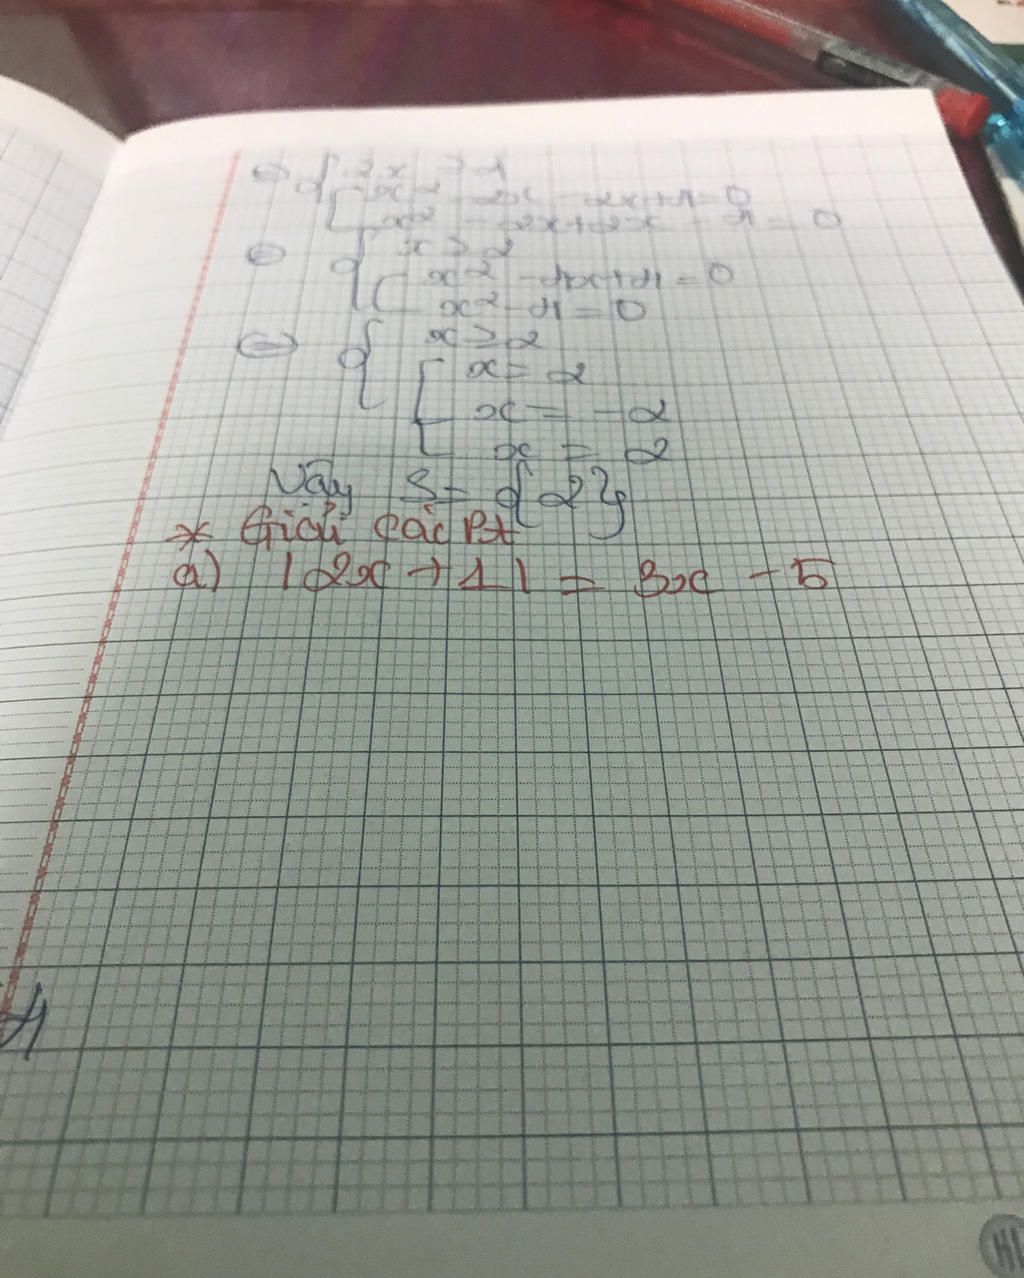 ⇔ { 2x ≥ 4
[ x² - 2x - 2x + 4 = 0
x² - 2x + 2x - 4 = 0
⇔ { x ≥ 2
[ x² - 4x + 4 = 0
x² - 4 = 0
⇔ { x ≥ 2
[ x = 2
x = -2
x = 2
Vậy S = {2}
* Giải các Pt
a) |2x + 1| = 3x - 5